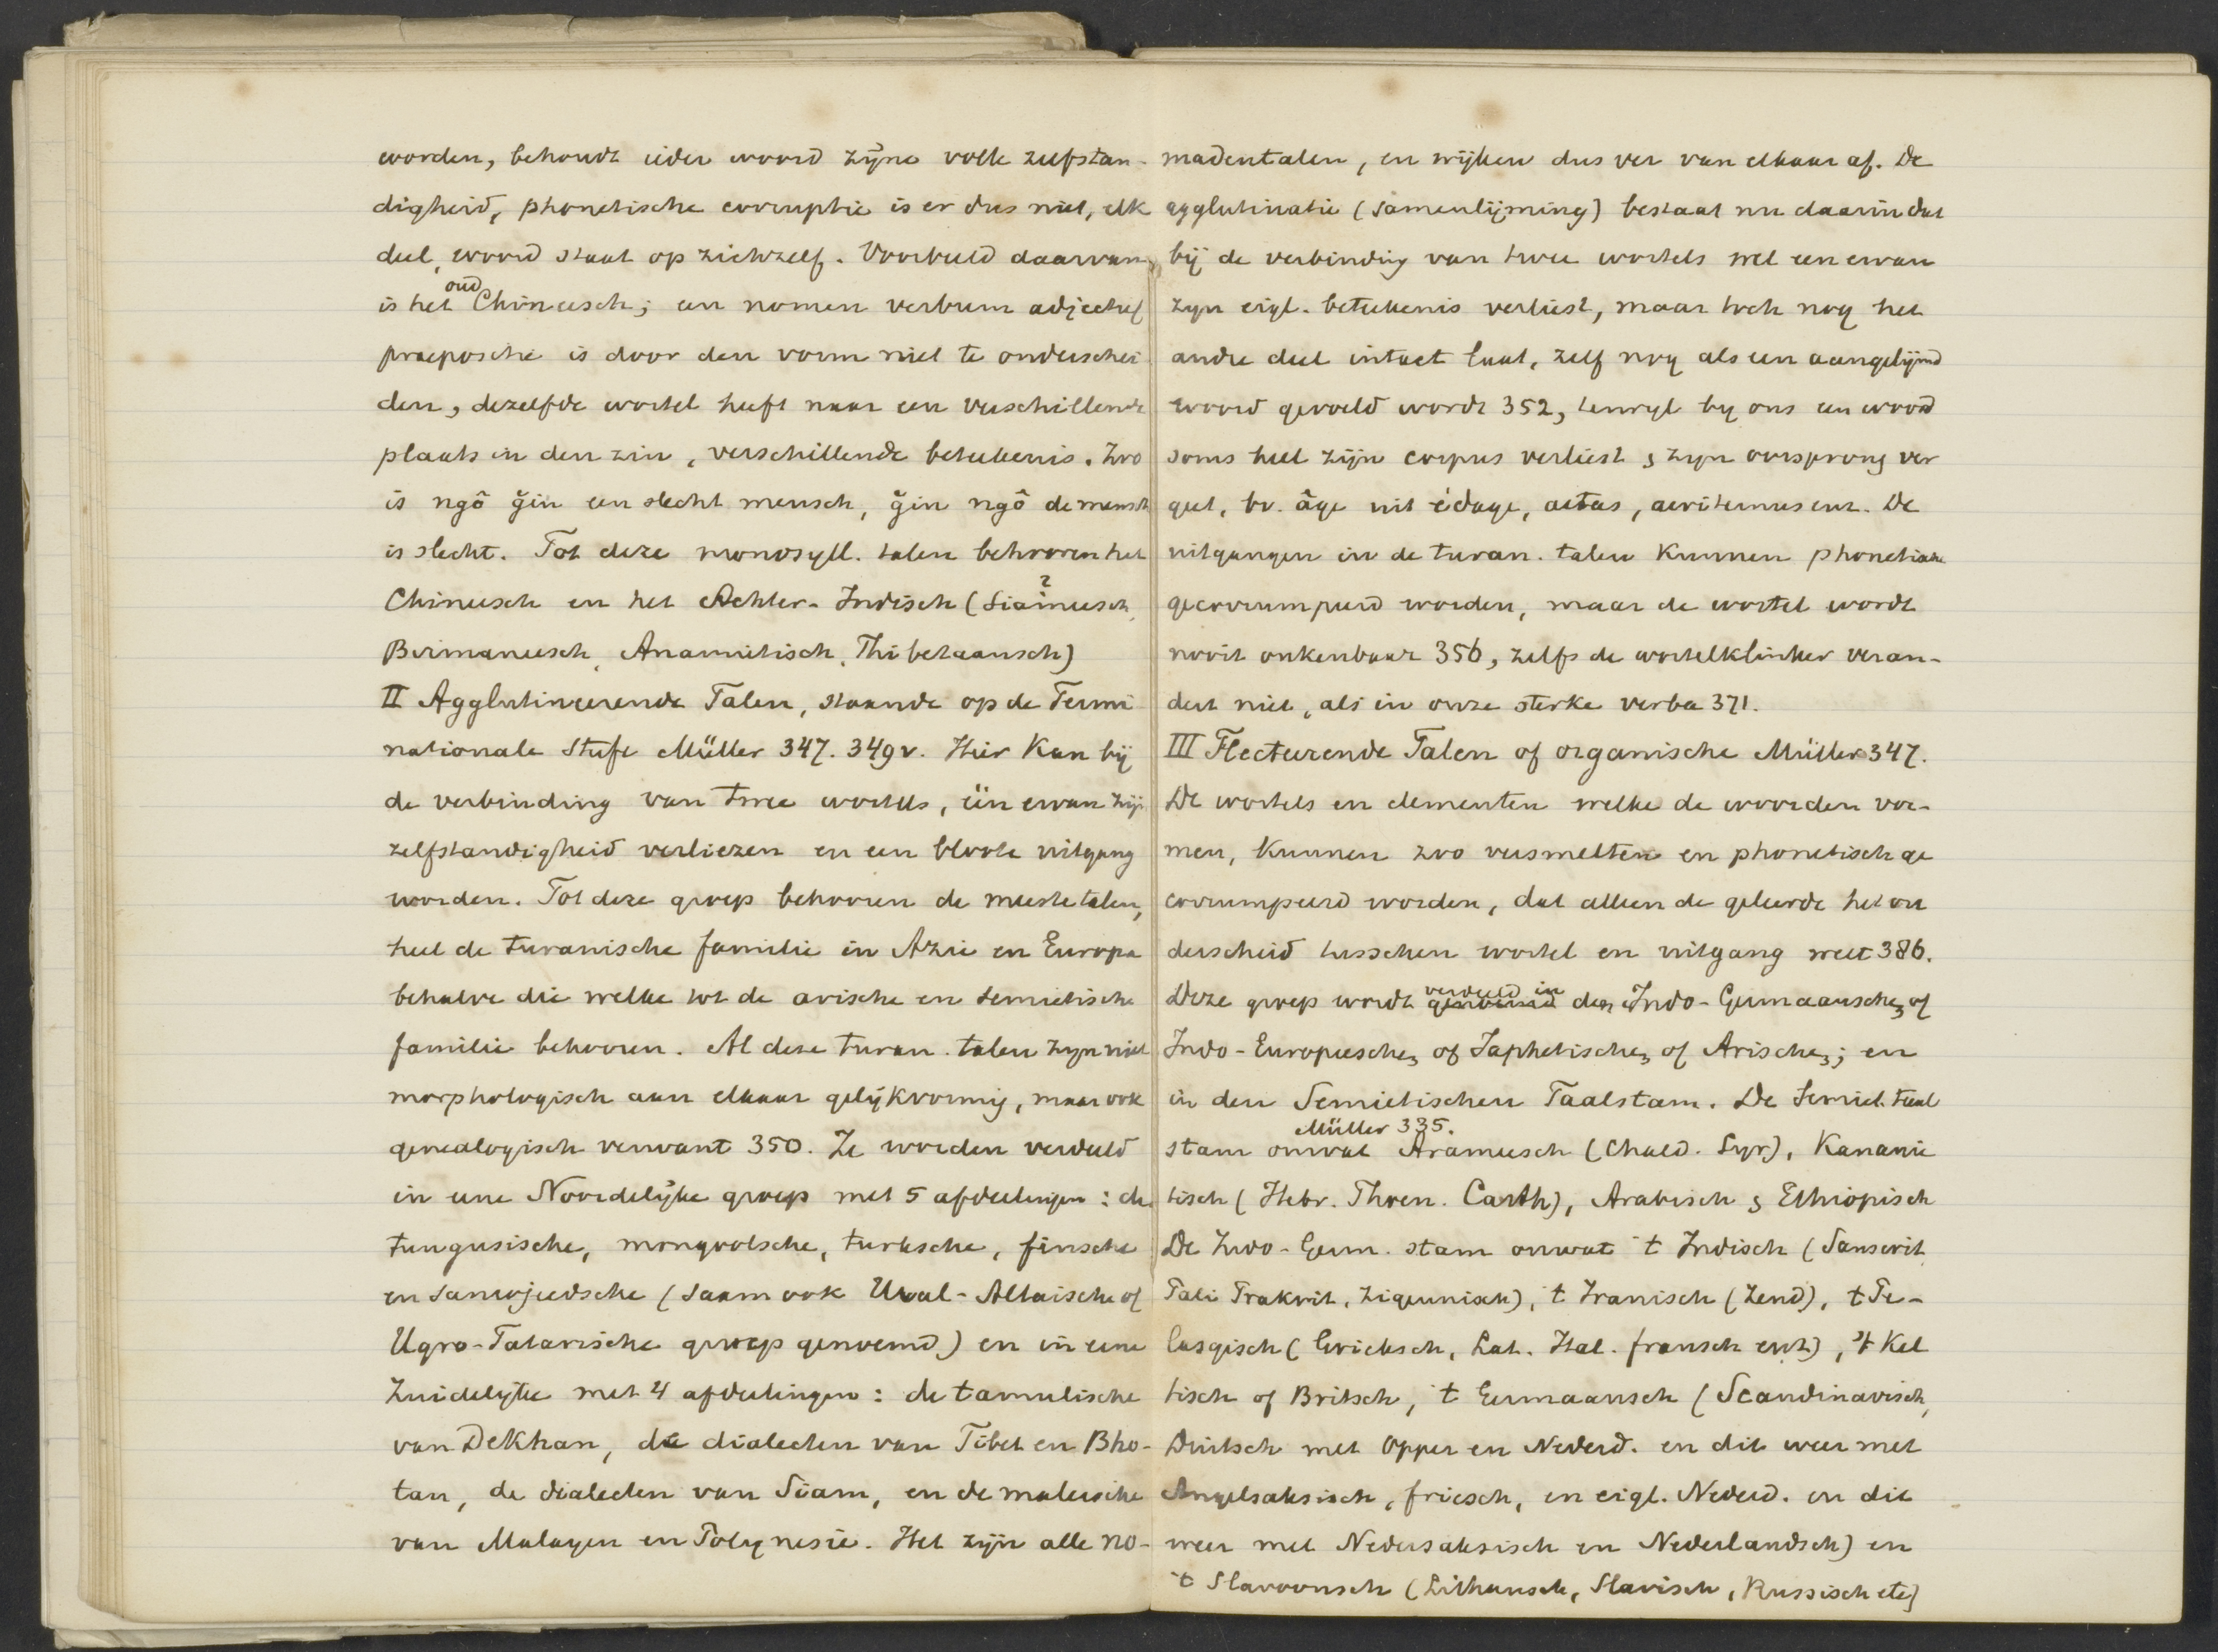 worden, behoudt ieder woord zijne volle zelfstan-
digheid, phonetische corruptie is er dus niet, elk
deel, woord staat op zichzelf. Voorbeeld daarvan
is het oud Chineesch; een nomen verbum adjectief
praepositie is door den vorm niet te onderschei
den, dezelfde wortel heeft naar een verschillende
plaats in den zin, verschillende beteekenis. Zoo
is ngŏ ğin een slecht mensch, ğin ngŏ de mensch
is slecht. Tot deze monosyll. talen behooren het
Chineesch en het Achter-Indisch (Siameesch, ?
Birmaneesch, Anamietisch, Thibetaansch)
II Agglutineerende Talen, staande op de Termi
nationale Stufe Müller 347. 349v. Hier kan bij
de verbinding van twee wortels, één ervan zijn
zelfstandigheid verliezen en een bloote uitgang
worden. Tot deze groep behooren de meeste talen,
heel de turanische familie in Azie en Europa
behalve die welke tot de arische en semietische
familie behooren. Al deze turan. talen zyn niet
morphologisch aan elkaar gelijkvormig, maar ook
genealogisch verwant 350. Ze worden verdeeld
in eene Noordelijke groep met 5 afdeelingen: de
tungusische, mongoolsche, turksche, finsche
en samojeedsche (saam ook Ural-Altaische of
Ugro-Tatarische groep genoemd) en in eene
Zuidelijke met 4 afdeelingen: de tamulische
van Dekhan, de dialecten van Tibet en Bho-
tan, de dialecten van Siam, en de maleische
van Malayen en Polynesië. Het zijn alle no-
madentalen, en wijken dus ver van elkaar af. De
agglutinatie (samenlijming) bestaat nu daarin dat
bij de verbinding van twee wortels wel een ervan
zyn eigl. beteekenis verliest, maar toch nog het
andre deel intact laat, zelf nog als een aangelijmd
woord gevoeld wordt 352, terwyl by ons een woord
soms heel zijn corpus verliest & zyn oorsprong ver
geet, bv. âge uit édage, aetas, aeviternus enz. De
uitgangen in de turan. talen kunnen phonetisch
gecorrumpeerd worden, maar de wortel wordt
nooit onkenbaar 356, zelfs de wortelklinker veran-
dert niet, als in onze sterke verba 371.
III Flecteerende Talen of organische Müller 347.
De wortels en elementen welke de woorden vor-
men, kunnen zoo versmelten en phonetisch ge
corrumpeerd worden, dat alleen de geleerde het on
derscheid tusschen wortel en uitgang weet 386.
Deze groep wordt genoemd verdeeld in den Indo-Germaanschen of
Indo-Europeeschen of Japhetischen of Arischen; en
in den Semietischen Taalstam. De Semiet. taal
stam omvat Müller 335. Arameesch (Chald. Syr), Kananie
tisch (Hebr. Phoen. Carth), Arabisch & Ethiopisch
De Indo-Germ. stam omvat 't Indisch (Sanscrit,
Pali Prakrit, Zigeunisch), 't Iranisch (Zend), 't Pe-
lasgisch (Grieksch, Lat. Ital. fransch enz), 't Kel
tisch of Britsch, 't Germaansch (Scandinavisch,
Duitsch met Opper en Nederd. en dit weer met
Angelsaksisch, friesch, en eigl. Nederd. en dit
weer met Nedersaksisch en Nederlandsch) en
't Slavoonsch (Lithausch, Slavisch, Russisch etc)